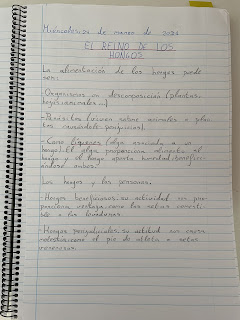 Miércoles 24 de marzo de 2021
EL REINO DE LOS
HONGOS.
La alimentación de los hongos puede
ser:
-Organismos en descomposición (plantas,
hojas, animales...)
-Parásitos (viven sobre animales o plan
tas causándole perjuicios).
-Como líquenes (alga asociada a un
hongo). El alga proporciona alimento al
hongo y el hongo aporta humedad, benefici
ándose ambos.
Los hongos y las personas.
-Hongos beneficiosos: su actividad nos pro
porciona ventajas, como las setas comesti
bles o las levaduras.
-Hongos perjudiciales: su actitud nos causa
molestia, como el pie de atleta o setas
venenosas.